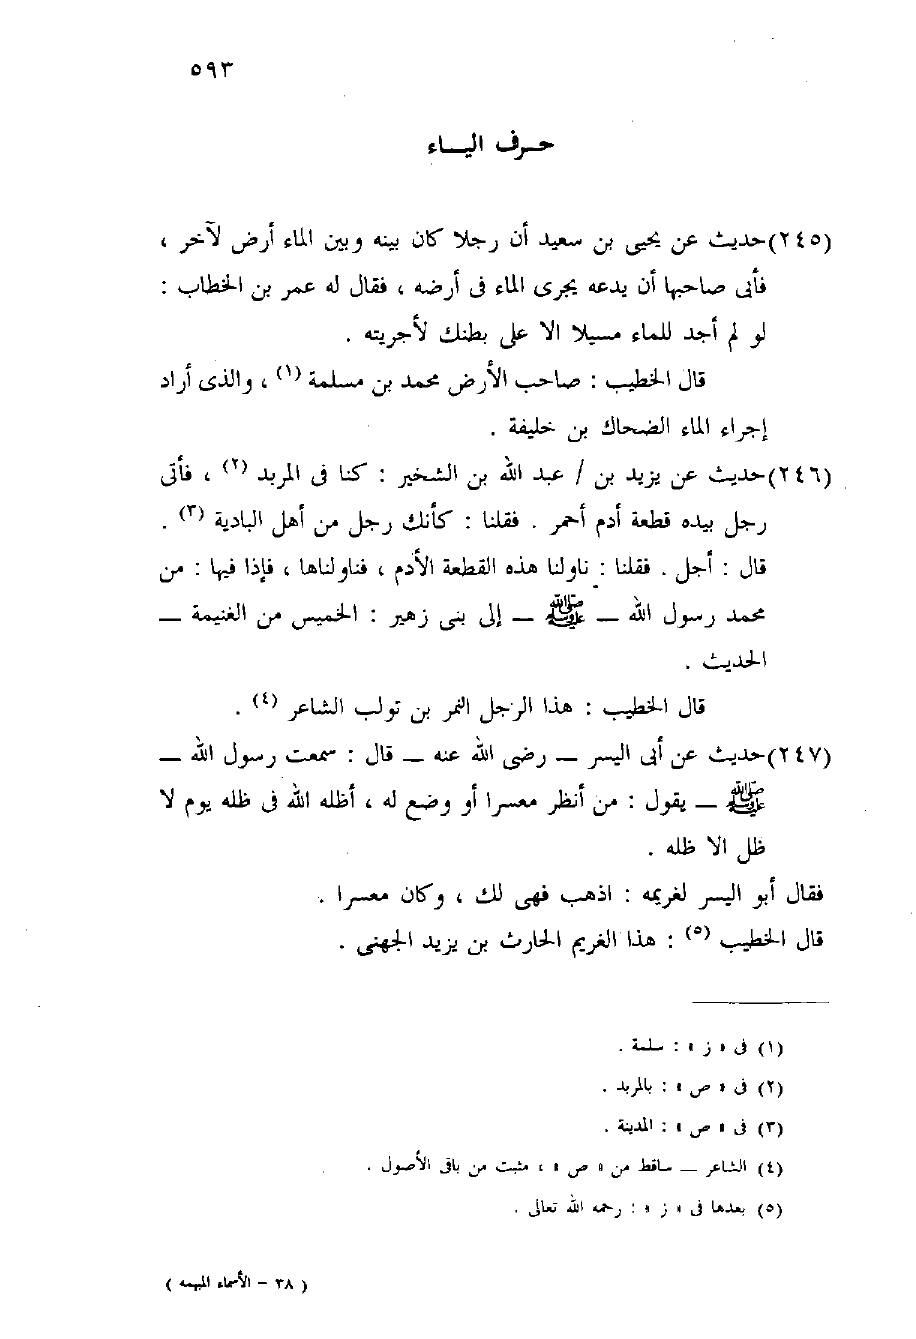 ٥٩٣
حـرف اليـــاء
(٢٤٥) حديث عن يحيى بن سعيد أن رجلا كان بينه وبين الماء أرض لآخر ،
فأبى صاحبها أن يدعه يجرى الماء فى أرضه ، فقال له عمر بن الخطاب :
لو لم أجد للماء مسيلا الا على بطنك لأجريته .
قال الخطيب : صاحب الأرض محمد بن مسلمة (١) ، والذى أراد
إجراء الماء الضحاك بن خليفة .
(٢٤٦) حديث عن يزيد بن / عبد الله بن الشخير : كنا فى المربد (٢) ، فأتى
رجل بيده قطعة أدم أحمر . فقلنا : كأنك رجل من أهل البادية (٣) .
قال : أجل . فقلنا : ناولنا هذه القطعة الأدم ، فناولناها ، فإذا فيها : من
محمد رسول الله — ﷺ — إلى بنى زهير : الخميس من الغنيمة —
الحديث .
قال الخطيب : هذا الرجل النمر بن تولب الشاعر (٤) .
(٢٤٧) حديث عن أبى اليسر — رضى الله عنه — قال : سمعت رسول الله —
ﷺ — يقول : من أنظر معسرا أو وضع له ، أظله الله فى ظله يوم لا
ظل الا ظله .
فقال أبو اليسر لغريمه : اذهب فهى لك ، وكان معسرا .
قال الخطيب (٥) : هذا الغريم الحارث بن يزيد الجهنى .
(١) فى « ز » : سلمة .
(٢) فى « ص » : بالمربد .
(٣) فى « ص » : المدينة .
(٤) الشاعر — ساقط من « ص » ، مثبت من باقى الأصول .
(٥) بعدها فى « ز » : رحمه الله تعالى .
( ٣٨ – الأسماء المبهمه )